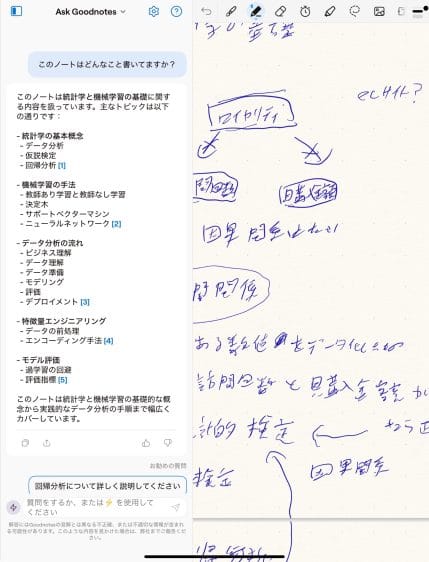 Ask Goodnotes
このノートはどんなこと書いてますか？
このノートは統計学と機械学習の基礎に関する内容を扱っています。主なトピックは以下の通りです：
- 統計学の基本概念
- データ分析
- 仮説検定
- 回帰分析 [1]
- 機械学習の手法
- 教師あり学習と教師なし学習
- 決定木
- サポートベクターマシン
- ニューラルネットワーク [2]
- データ分析の流れ
- ビジネス理解
- データ理解
- データ準備
- モデリング
- 評価
- デプロイメント [3]
- 特徴量エンジニアリング
- データの前処理
- エンコーディング手法 [4]
- モデル評価
- 過学習の回避
- 評価指標 [5]
このノートは統計学と機械学習の基礎的な概念から実践的なデータ分析の手順まで幅広くカバーしています。
お勧めの質問
回帰分析について詳しく説明してください
質問をするか、または⚡を使用してください
ECサイト?
ロイヤリティ
購入金額
因果関係はない
関係
ある数値をデータ化
訪問回数と購入金額が
計的検定
検定
因果関係